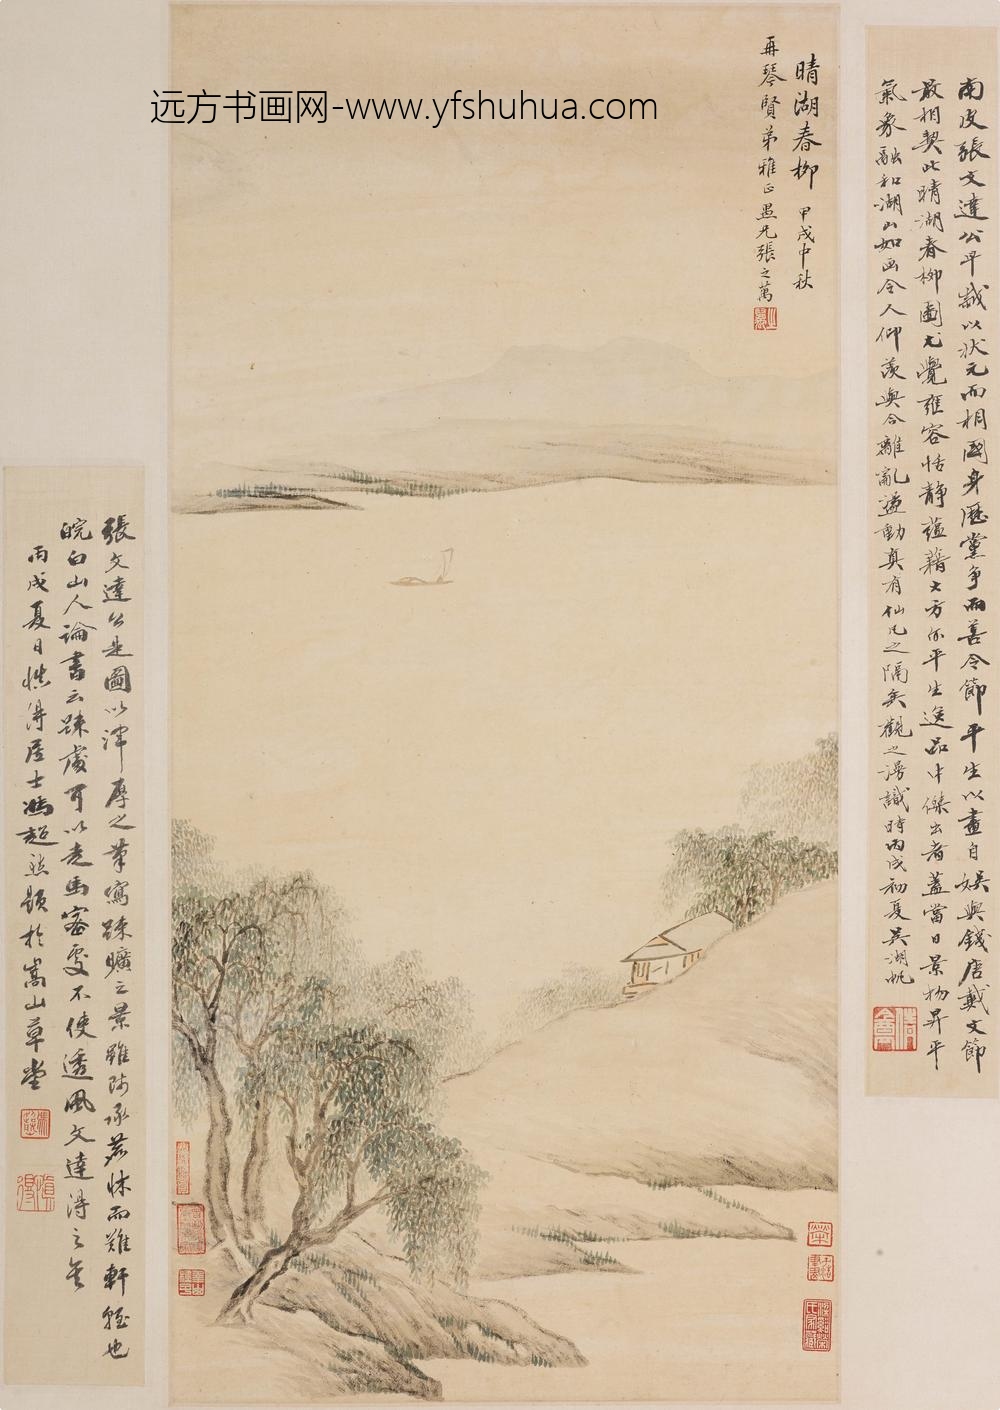 远方书画网-www.yfshuhua.com
晴湖春柳 甲戌中秋
再琴贤弟雅正愚兄張之萬
南皮張文達公早歲以状元而相國身歷黨爭而善令節平生以畫自娱與錢唐戴文節
最相契此晴湖春柳圖尤覺雍容恬静蘊藉大方亦平生逸品中傑出者蓋當日景物昇平
氣象融和湖山如画令人仰羡與今離亂遷動真有仙凡之隔矣觀之漫識時丙戌初夏吴湖帆
張文達公是圖以渾厚之筆寫疎曠之景雖師承麓牀而難軒輊也
皖白山人論書云疎處可以走馬密處不使透風文達得之矣
丙戌夏日慎得居士馮超然題於嵩山草堂